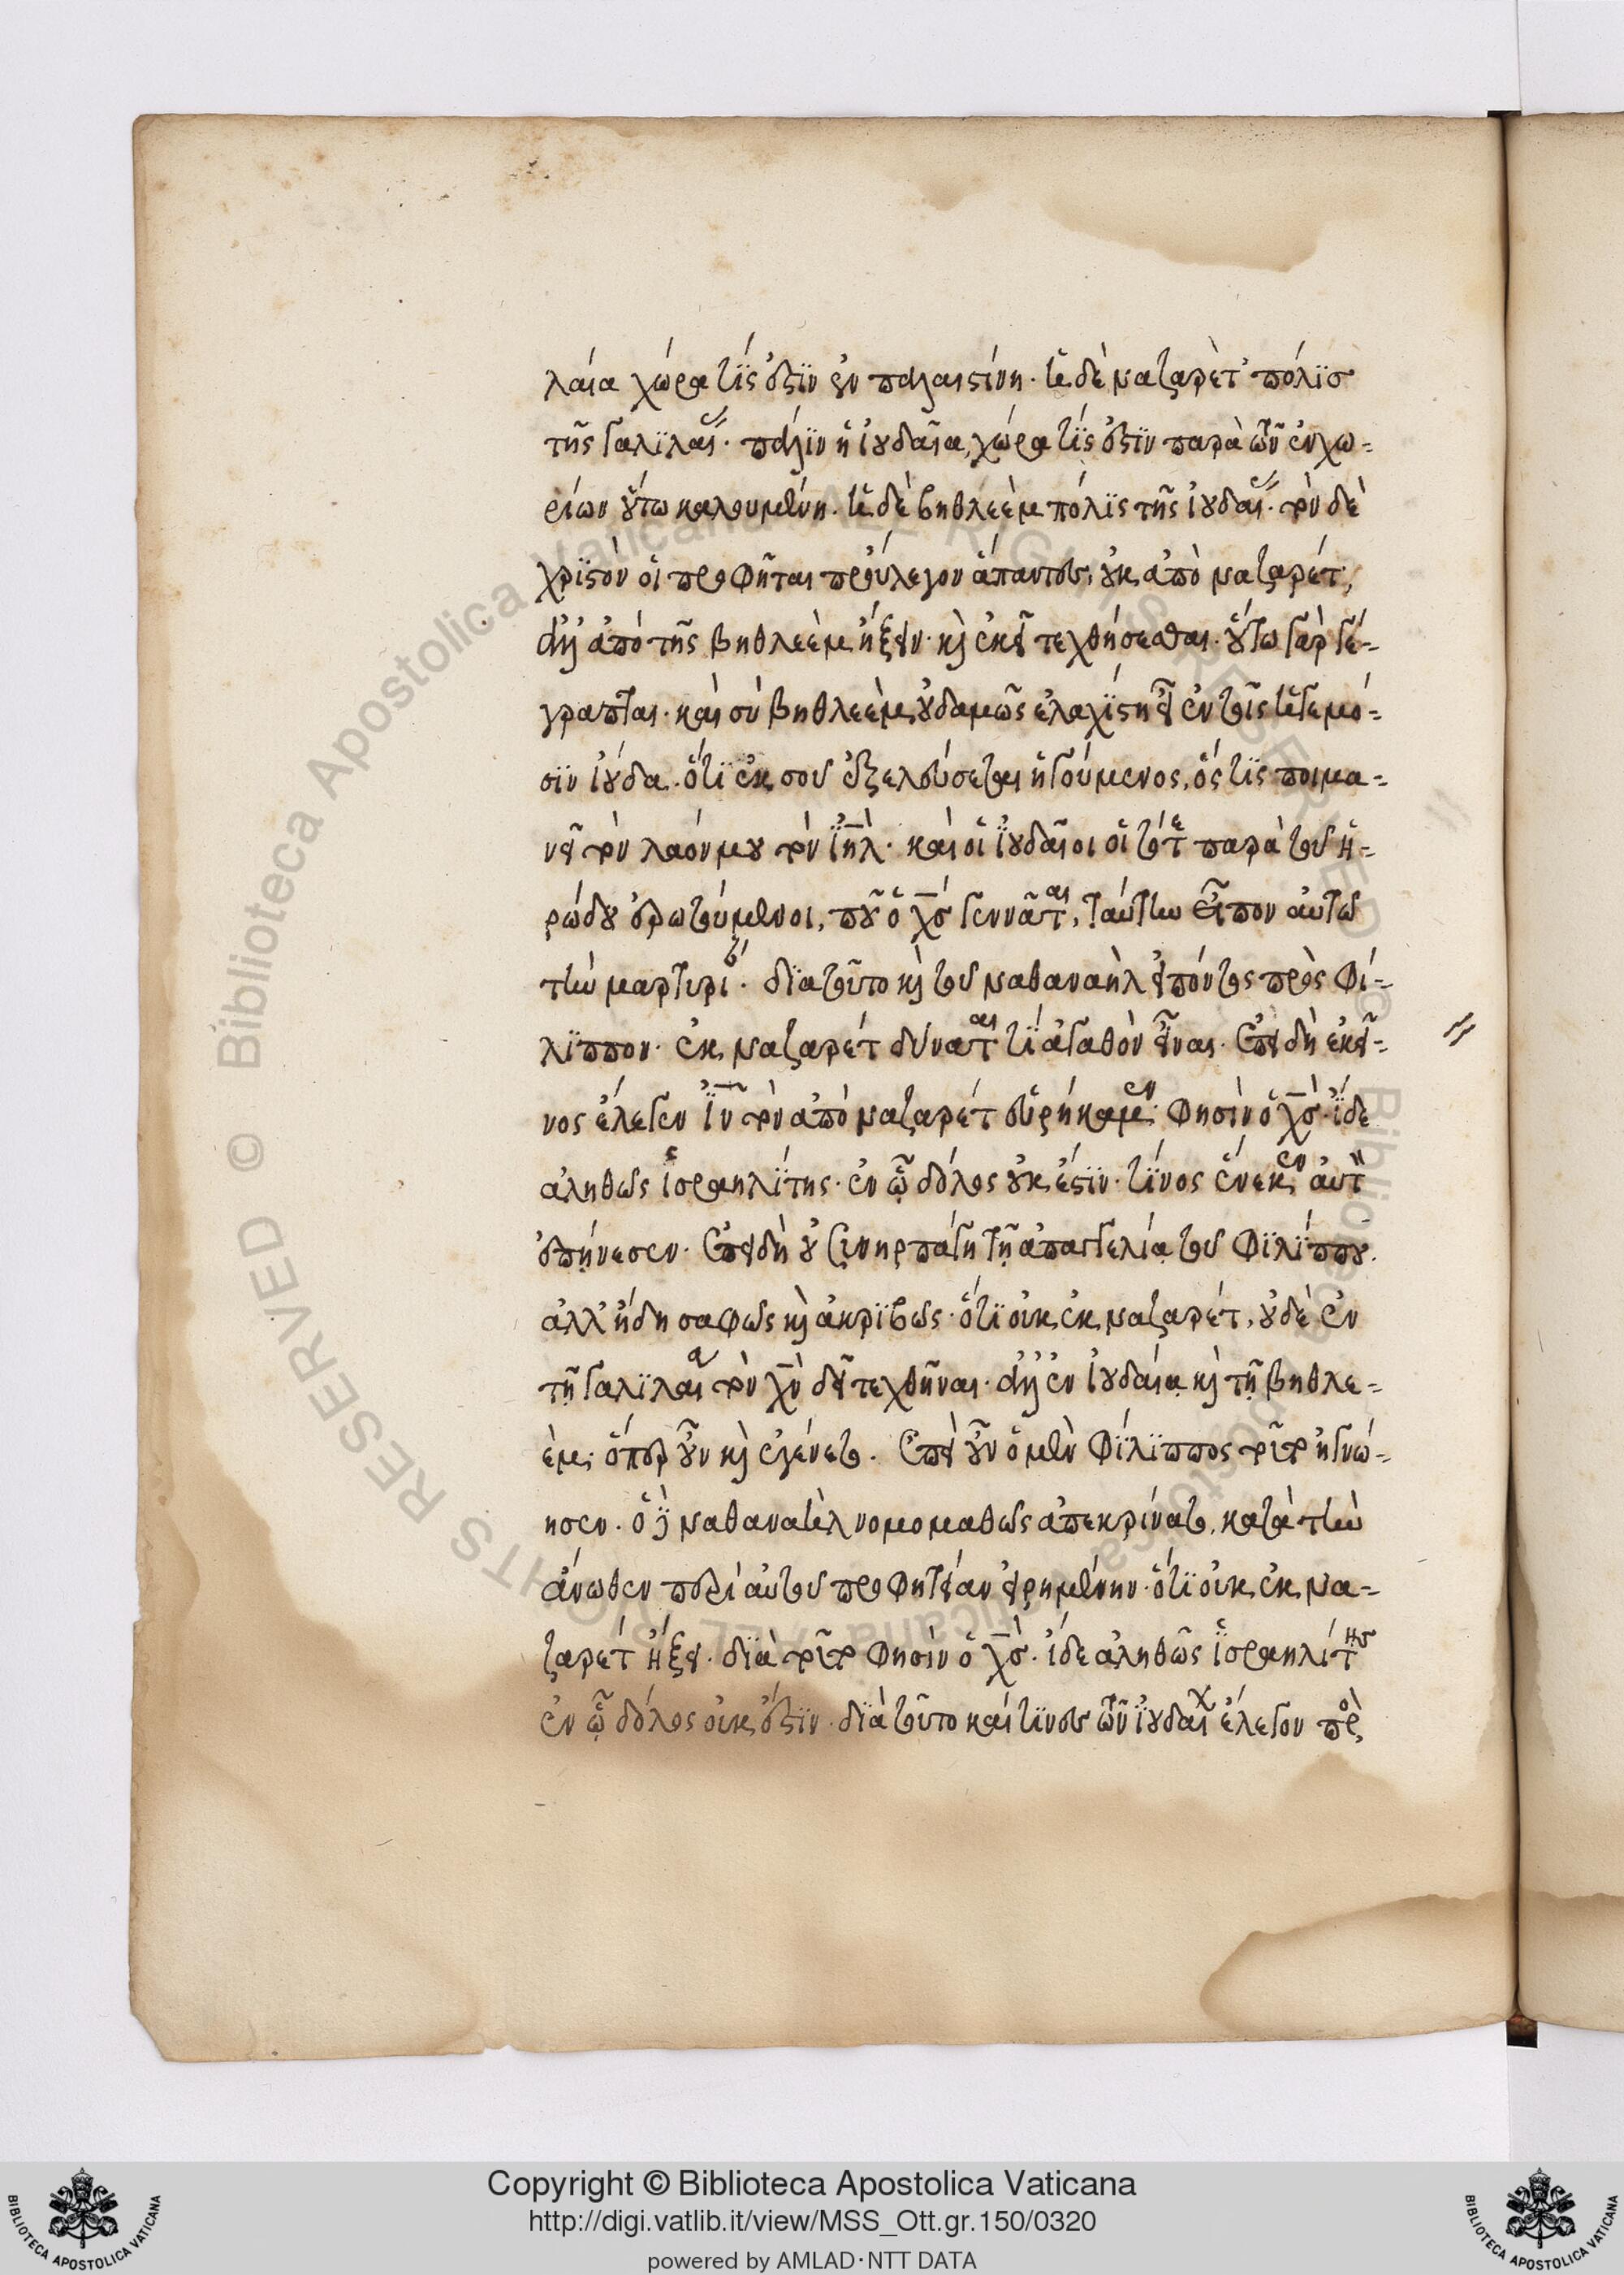 λαία χώρα τίς ἐστιν ἐν παλαιστίνη· ἡ δὲ ναζαρὲτ πόλις
τῆς γαλιλαίας· πάλιν ἡ ἰουδαῖα, χώρα τίς ἐστιν παρὰ τῶν ἐνχω-
ρίων οὕτω καλουμένη· ἡ δὲ βηθλεὲμ πόλις τῆς ἰουδαίας· τὸν δὲ
χριστὸν οἱ προφῆται προύλεγον ἅπαντες, οὐκ ἀπὸ ναζαρέτ,
ἀλλ' ἀπὸ τῆς βηθλεὲμ ἥξειν· καὶ ἐκεῖ τεχθήσεσθαι· οὕτω γὰρ γέ-
γραπται· καὶ σὺ βηθλεὲμ, οὐδαμῶς ἐλαχίστη εἶ ἐν τοῖς ἡγεμό-
σιν ἰούδα· ὅτι ἐκ σοῦ ἐξελεύσεται ἡγούμενος, ὅς τις ποιμα-
νεῖ τὸν λαόν μου τὸν ἰηλ· καὶ οἱ ἰουδαῖοι οἱ τότε παρὰ τοῦ ἡ-
ρώδου ἐρωτώμενοι, ποῦ ὁ χς γεννᾶται, ταύτην εἶπον αὐτῶ
τὴν μαρτυρίαν· διατοῦτο καὶ τοῦ ναθαναὴλ εἰπόντος πρὸς φί-
λιππον· ἐκ ναζαρέτ δύναται τί ἀγαθὸν εἶναι· ἐπειδὴ ἐκεῖ-
νος ἔλεγεν ἰν τὸν ἀπὸ ναζαρέτ εὑρήκαμεν· φησὶν ὁ χς· ἴδε
ἀληθῶς ἰσραηλίτης· ἐν ᾧ δόλος οὐκ ἔστιν· τίνος ἕνεκεν αὐτὸν
ἐπήνεσεν· ἐπειδὴ οὐ συνηρπάγη τῇ ἀπαγγελίᾳ τοῦ φιλίππου·
ἀλλ' ἤδη σαφῶς καὶ ἀκριβῶς· ὅτι οὐκ ἐκ ναζαρέτ, οὐδὲ ἐν
τῇ γαλιλαίᾳ τὸν χν δεῖ τεχθῆναι· ἀλλ' ἐν ἰουδαίᾳ καὶ τῇ βηθλε-
ὲμ· ὅπερ οὖν καὶ ἐγένετο· ἐπεὶ οὖν ὁ μὲν φίλιππος τοῦτο ἠγνό-
ησεν· ὁ δὲ ναθαναὴλ νομομαθὼς ἀπεκρίνατο, κατὰ τὴν
ἄνωθεν περὶ αὐτοῦ προφητείαν εἰρημένην· ὅτι οὐκ ἐκ να-
ζαρέτ ἥξει· διὰ τοῦτο φησὶν ὁ χς· ἴδε ἀληθῶς ἰσραηλίτης
ἐν ᾧ δόλος οὐκ ἔστιν· διὰ τοῦτο καί τινες τῶν ἰουδαίων ἔλεγον πρὸς
Copyright © Biblioteca Apostolica Vaticana
http://digi.vatlib.it/view/MSS_Ott.gr.150/0320
powered by AMLAD·NTT DATA